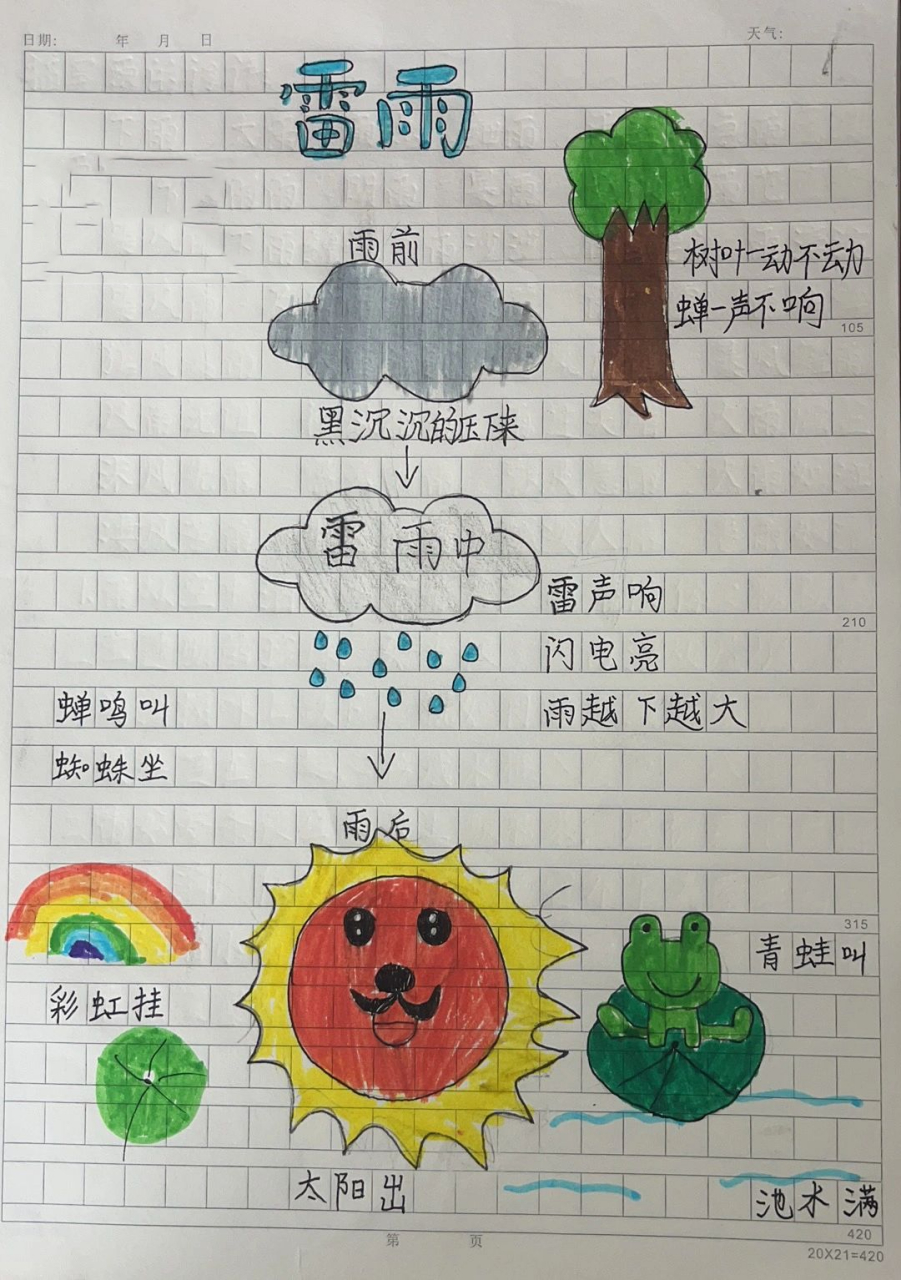 日期: 年 月 日 天气:
雷雨
雨前
树叶一动不动
蝉一声不响
105
黑沉沉的压下来
雷雨中
雷声响
210
闪电亮
蝉鸣叫
雨越下越大
蜘蛛坐
雨后
315
青蛙叫
彩虹挂
太阳出
池水满
第 页
420
20X21=420